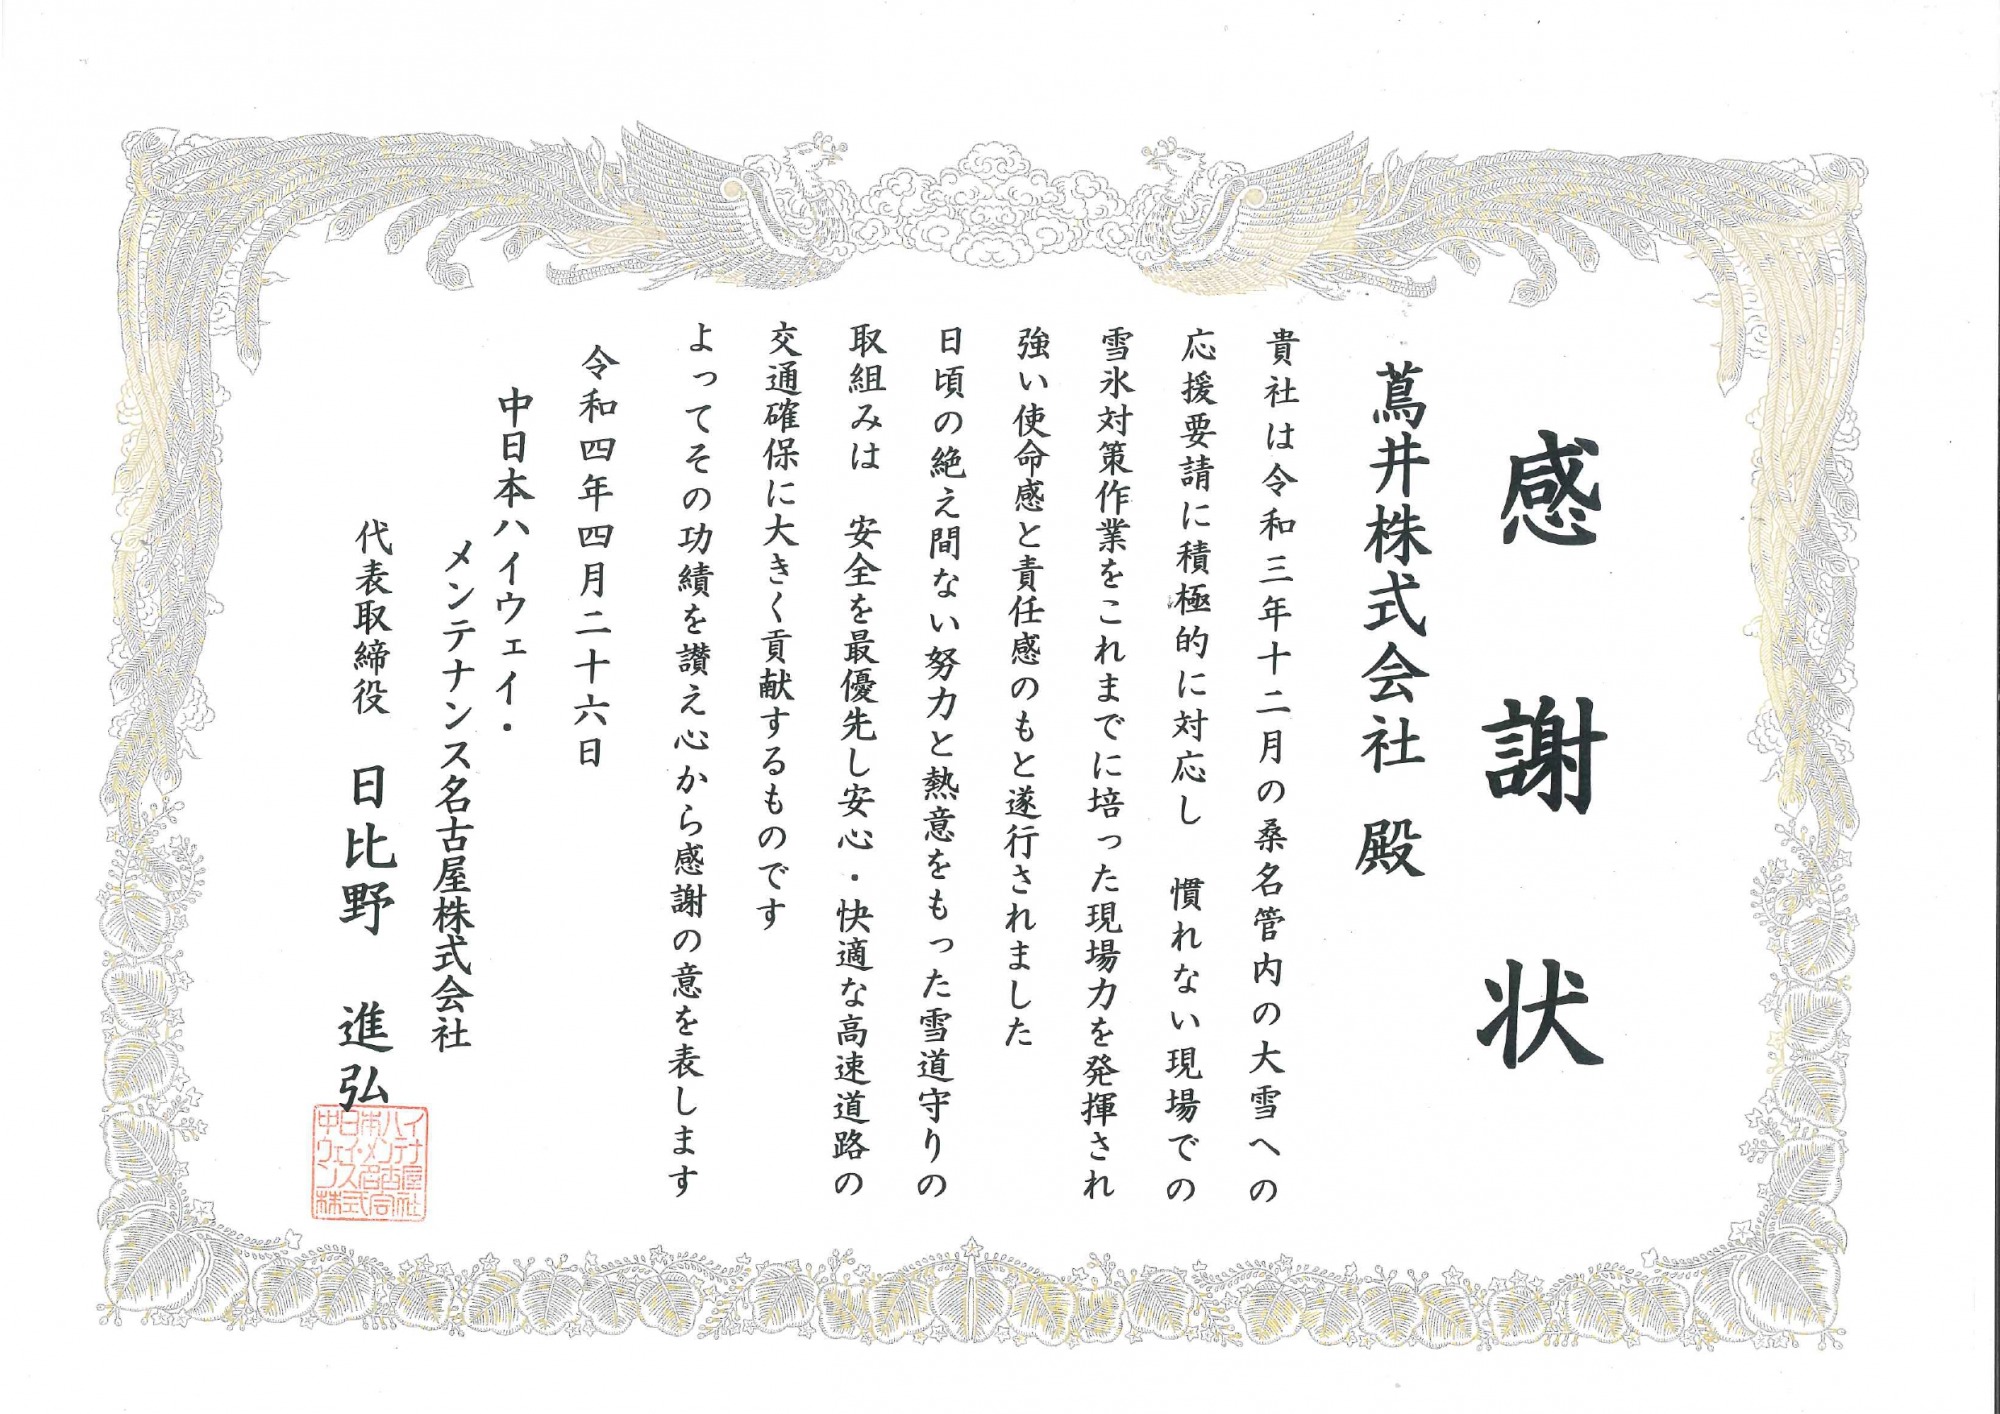 感謝状
蔦井株式会社 殿
貴社は令和三年十二月の桑名管内の大雪への
応援要請に積極的に対応し 慣れない現場での
雪氷対策作業をこれまでに培った現場力を発揮され
強い使命感と責任感のもと遂行されました
日頃の絶え間ない努力と熱意をもった雪道守りの
取組みは 安全を最優先し安心・快適な高速道路の
交通確保に大きく貢献するものです
よってその功績を讃え心から感謝の意を表します
令和四年四月二十六日
中日本ハイウェイ・
メンテナンス名古屋株式会社
代表取締役 日比野 進弘
中日本ハイ
ウェイ・メンテナ
ンス名古屋
株式会社